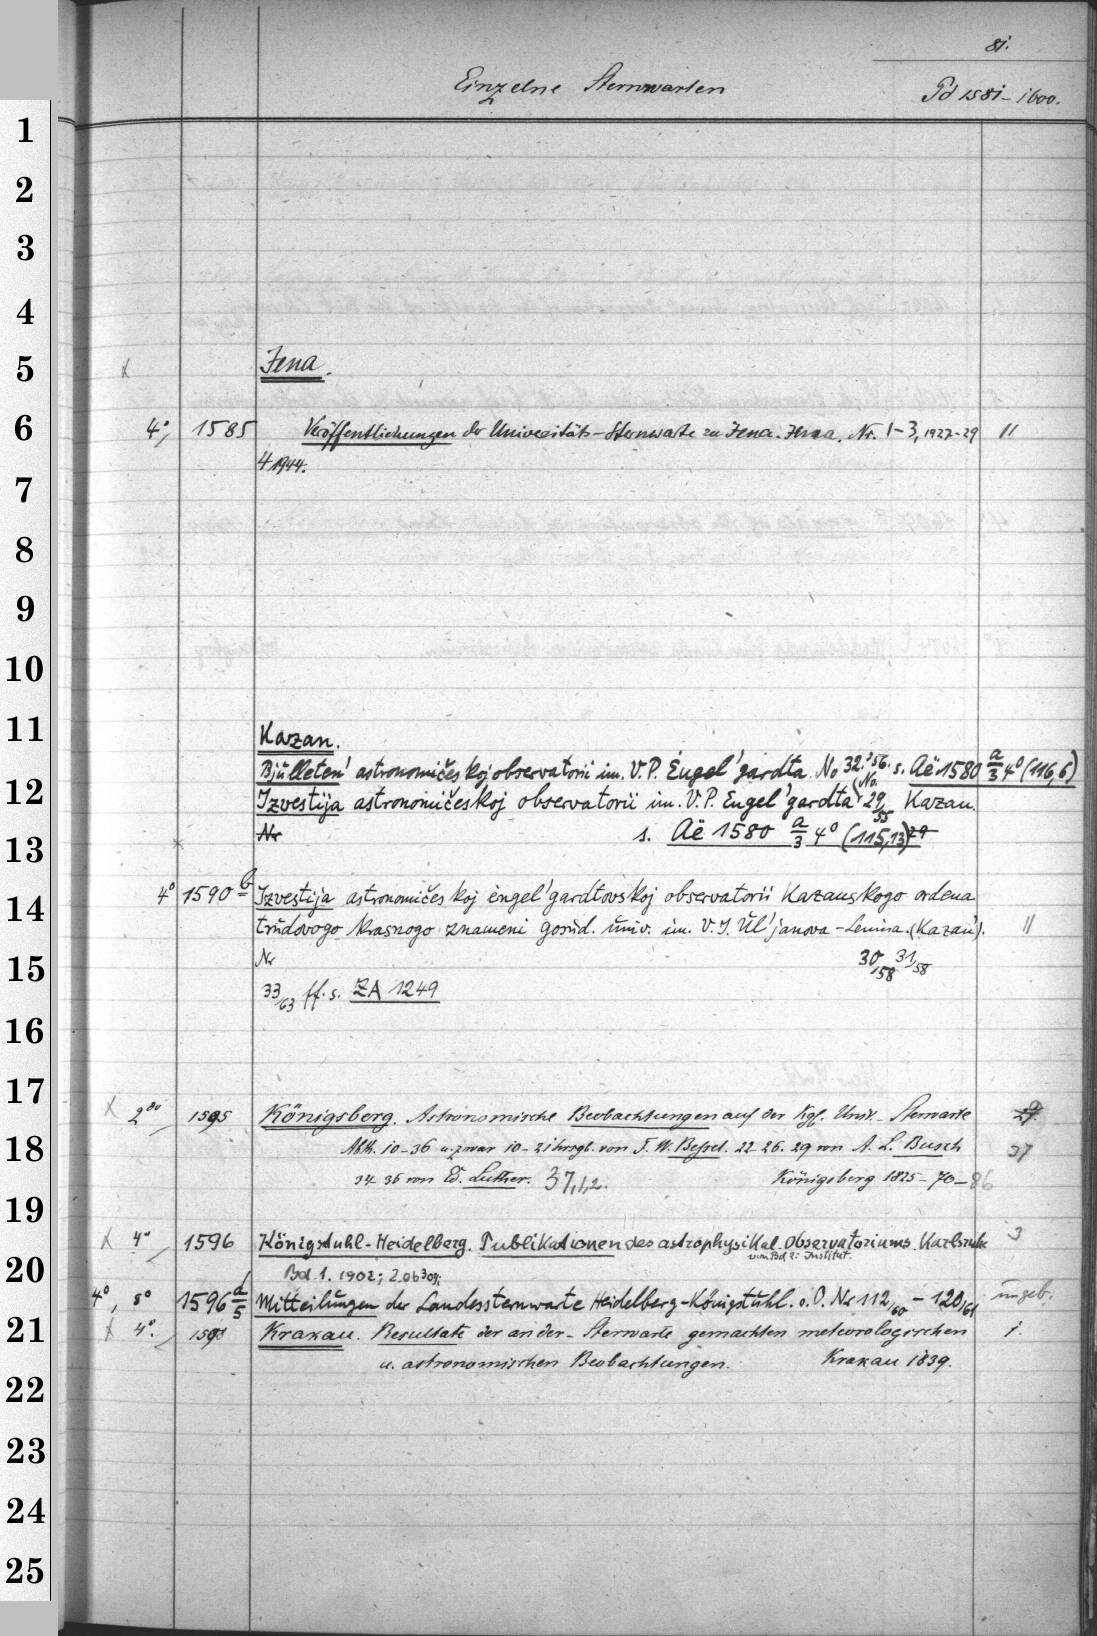 81.
Einzelne Sternwarten
Pd 1581–1600.
1
2
3
4
5
Jena.
6
4°, 1585 Veröffentlichungen der Universitäts-Sternwarte zu Jena. Jena. Nr. 1–3, 1927–29 11
4 1944.
7
8
9
10
11
Kazan.
Bjulleten' astronomičeskoj observatorii im. V. P. Ėngel'gardta. No 32. '56. s. Aë 1580 a/3 4° (116,6)
12
Izvestija astronomičeskoj observatorii im. V. P. Engel'gardta (No. 29/55 Kazan.
Nr s. Aë 1580 a/3 4° (115,13) 29
13
4° 1590 b Izvestija astronomičeskoj ėngel'gardtovskoj observatorii Kazanskogo ordena
14
trudovogo krasnogo znameni gosud. univ. im. V. I. Ul'janova-Lenina. (Kazan'). 11
Nr 30/58 31/58
15
33/63 ff. s. ZA 1249
16
17
X 1595 Königsberg. Astronomische Beobachtungen auf der Kgl. Univ.- Sternwarte
18
Abth. 10–36 u. zwar 10–21 hrsgb. von F. W. Bessel. 22–26. 29 von A. L. Busch 37
34 36 von Ed. Luther. 37,1,2. Königsberg 1825–70–86
19
X 4° 1596 Königstuhl-Heidelberg. Publikationen des astrophysikal. Observatoriums. Karlsruhe 3
von Bd 2: Institut.
20
Bd. 1. 1902; 2.06 3 09;
4°, 8° 1596 d/5 Mitteilungen der Landessternwarte Heidelberg-Königstuhl. o. O. Nr 112/60 – 120/61 ungeb.
21
X 4°. 1598 Krakau. Resultate der an der - Sternwarte gemachten meteorologischen 1.
u. astronomischen Beobachtungen. Krakau 1839.
22
23
24
25